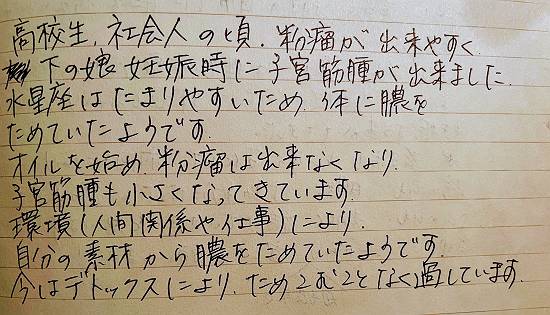 高校生,社会人の頃.粉瘤が出来やすく
下の娘妊娠時に子宮筋腫が出来ました.
水星座はたまりやすいため.体に膿を
ためていたようです.
オイルを始め.粉瘤は出来なくなり.
子宮筋腫も小さくなってきています.
環境(人間関係や仕事)により.
自分の素材から膿をためていたようです
今はデトックスにより.ためこむことなく過しています.